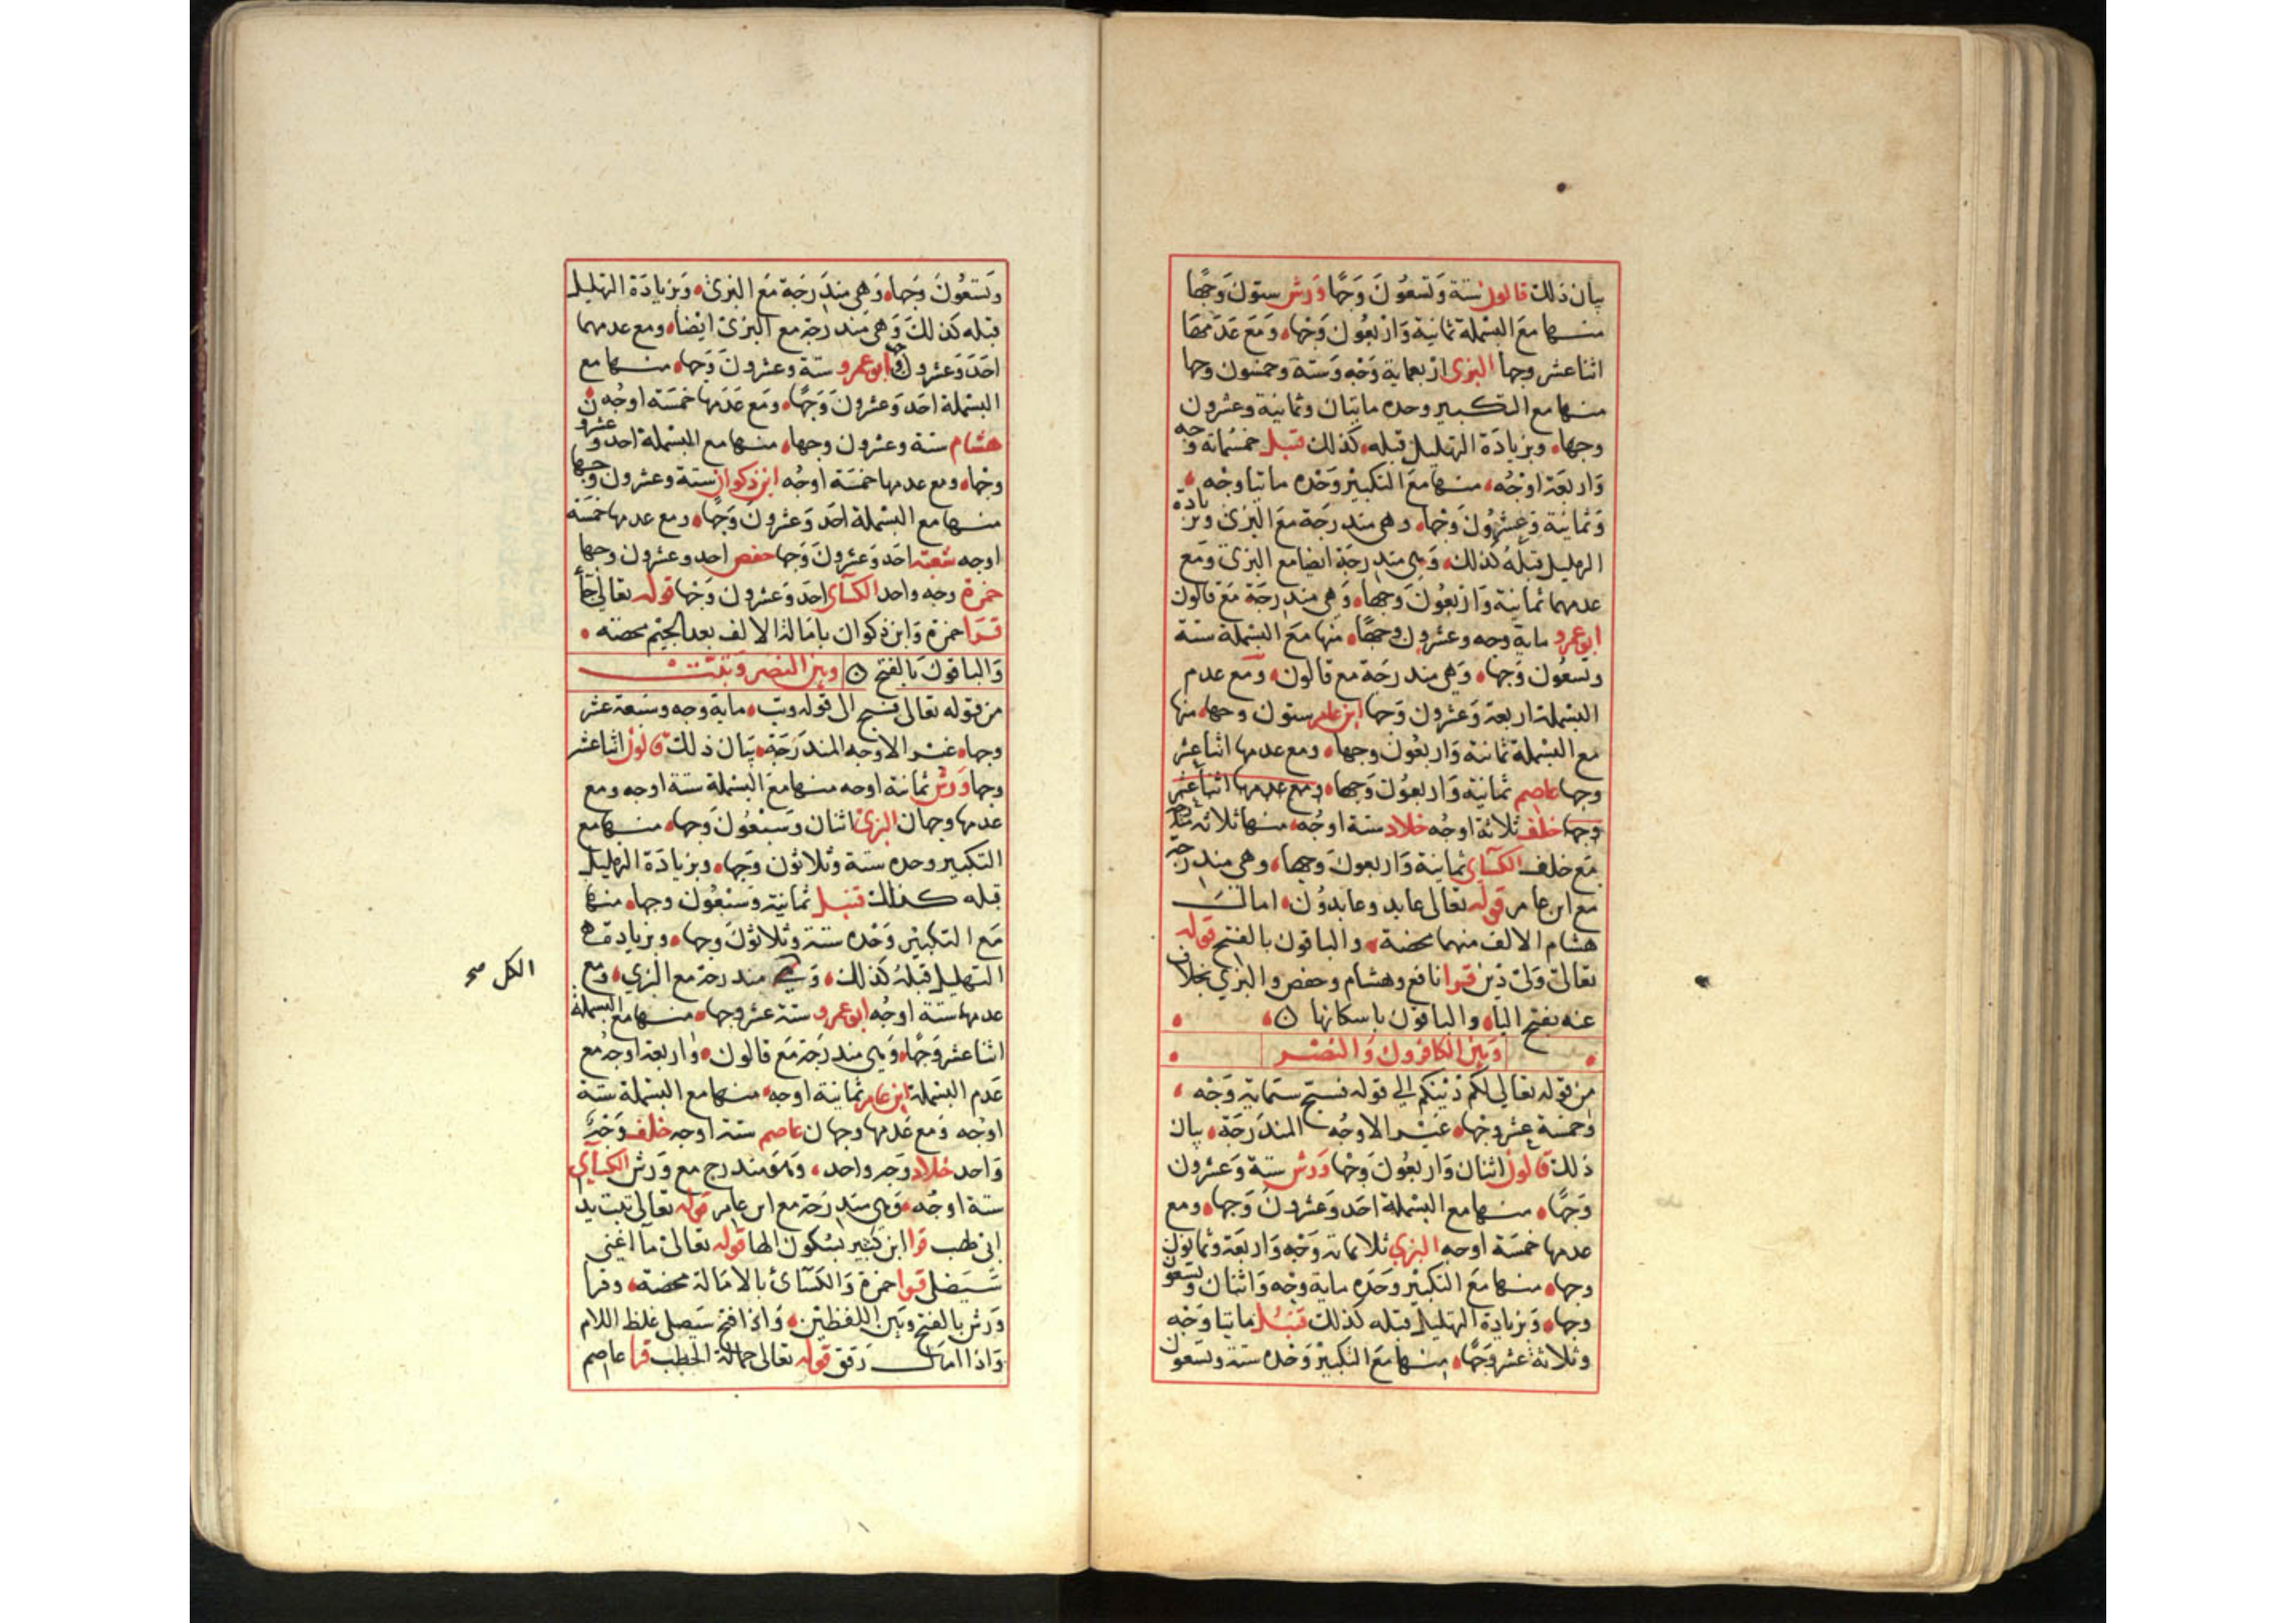 بيان ذلك قالون ستة وتسعون وجها ورش ستون وجها
منها مع البسملة ثمانية واربعون وجها ومع عدمها
اثنا عشر وجها البزى اربعماية وجه وستة وخمسون وجها
منها مع التكبير وحده مايتان وثمانية وعشرون
وجها وبزيادة التهليل قبله كذلك قنبل خمسمائة وجه
واربعة اوجه منها مع التكبير وحده مايتا وجه
وثمانية وعشرون وجها وهى مندرجة مع البزى وبزيادة
التهليل قبله كذلك وهى مندرجة ايضا مع البزى ومع
عدمهما ثمانية واربعون وجها وهى مندرجة مع قالون
ابوعمرو ماية وجه وعشرون وجها منها مع البسملة ستة
وتسعون وجها وهى مندرجة مع قالون ومع عدم
البسملة اربعة وعشرون وجها ابن عامر ستون وجها منها
مع البسملة ثمانية واربعون وجها ومع عدمها اثنا عشر
وجها عاصم ثمانية واربعون وجها ومع عدمها اثنا عشر
وجها خلف ثلاثة اوجه خلاد ستة اوجه منها ثلاثة مندرجة
مع خلف الكسآى ثمانية واربعون وجها وهى مندرجة
مع ابن عامر قوله تعالى عابد وعابدون امالت
هشام الالف منهما محضة والباقون بالفتح قوله
تعالى ولى دين قرا نافع وهشام وحفص والبزي بخلاف
عنه بفتح اليا والباقون باسكانها
وبين الكافرون والنصر
من قوله تعالى لكم دينكم الى قوله فسبح ستماية وجه
وخمسة عشر وجها غير الاوجه المندرجة بيان
ذلك قالون اثنان واربعون وجها ورش ستة وعشرون
وجها منها مع البسملة احد وعشرون وجها ومع
عدمها خمسة اوجه البزي ثلاثماية وجه واربعة وثمانون
وجها منها مع التكبير وحده ماية وجه واثنان وتسعون
وجها وبزيادة التهليل قبله كذلك قنبل مايتا وجه
وثلاثة عشر وجها منها مع التكبير وحده ستة وتسعون
وتسعون وجها وهى مندرجة مع البزى وبزيادة التهليل
قبله كذلك وهى مندرجة مع البزى ايضا ومع عدمهما
احد وعشرون وجها ابوعمرو ستة وعشرون وجها منها مع
البسملة احد وعشرون وجها ومع عدمها خمسة اوجه
هشام ستة وعشرون وجها منها مع البسملة احد وعشرون
وجها ومع عدمها خمسة اوجه ابن ذكوان ستة وعشرون وجها
منها مع البسملة احد وعشرون وجها ومع عدمها خمسة
اوجه شعبة احد وعشرون وجها حفص احد وعشرون وجها
حمزة وجه واحد الكسآى احد وعشرون وجها قوله تعالى جآ
قرا حمزة وابن ذكوان بامالة الالف بعد الجيم محضة
والباقون بالفتح وبين النصر وتبت
من قوله تعالى فسبح الى قوله وتب ماية وجه وسبعة عشر
وجها غير الاوجه المندرجة بيان ذلك قالون اثنا عشر
وجها ورش ثمانية اوجه منها مع البسملة ستة اوجه ومع
عدمها وجهان البزى اثنان وسبعون وجها منها مع
التكبير وحده ستة وثلاثون وجها وبزيادة التهليل
قبله كذلك قنبل ثمانية وسبعون وجها منها
مع التكبير وحده ستة وثلاثون وجها وبزيادة
التهليل قبله كذلك مندرجة مع البزي ومع
الكل صح
عدمها ستة اوجه ابوعمرو ستة عشر وجها منها مع البسملة
اثنا عشر وجها وهى مندرجة مع قالون واربعة اوجه مع
عدم البسملة ابن عامر ثمانية اوجه منها مع البسملة ستة
اوجه ومع عدمها وجهان عاصم ستة اوجه خلف وجه
واحد خلاد وجه واحد وهو مندرج مع ورش الكسآي
ستة اوجه وهى مندرجة مع ابن عامر قوله تعالى تبت يدا
ابى لهب قرا ابن كثير بسكون الها قوله تعالى ما اغنى
سيصلى قرا حمزة والكسآئ بالامالة محضة وقرا
ورش بالفتح وبين اللفظين واذا فتح سيصلى غلظ اللام
واذا امال رقق قوله تعالى حمالة الحطب قرا عاصم